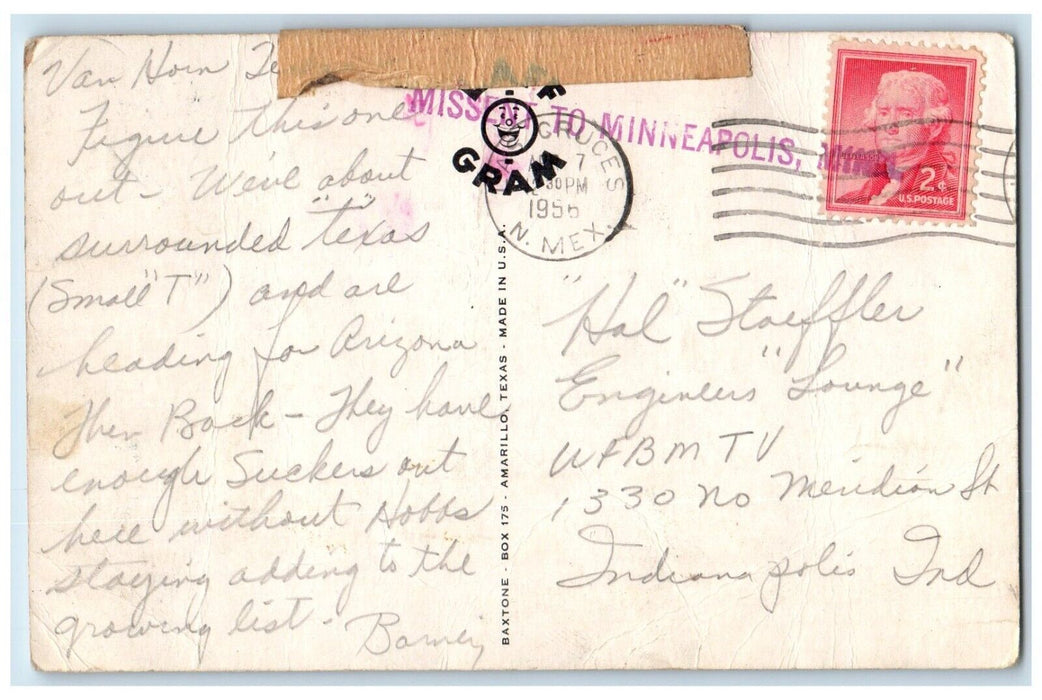 Van Horn Te
Figure this one
out - We've about
surrounded "texas"
(Small "T") and are
heading for Arizona
then Back - They have
enough Suckers out
here without Hobbs
staying adding to the
growing list -
Barney
GRAM
MISSENT TO MINNEAPOLIS, MINN.
CRUCES
7
30 PM
1956
N. MEX.
2¢
U.S. POSTAGE
BAXTONE - BOX 175 - AMARILLO, TEXAS - MADE IN U.S.A.
"Hal" Stoeffler
Engineers "Lounge"
WFBM TV
1330 No Meridian St
Indianapolis Ind